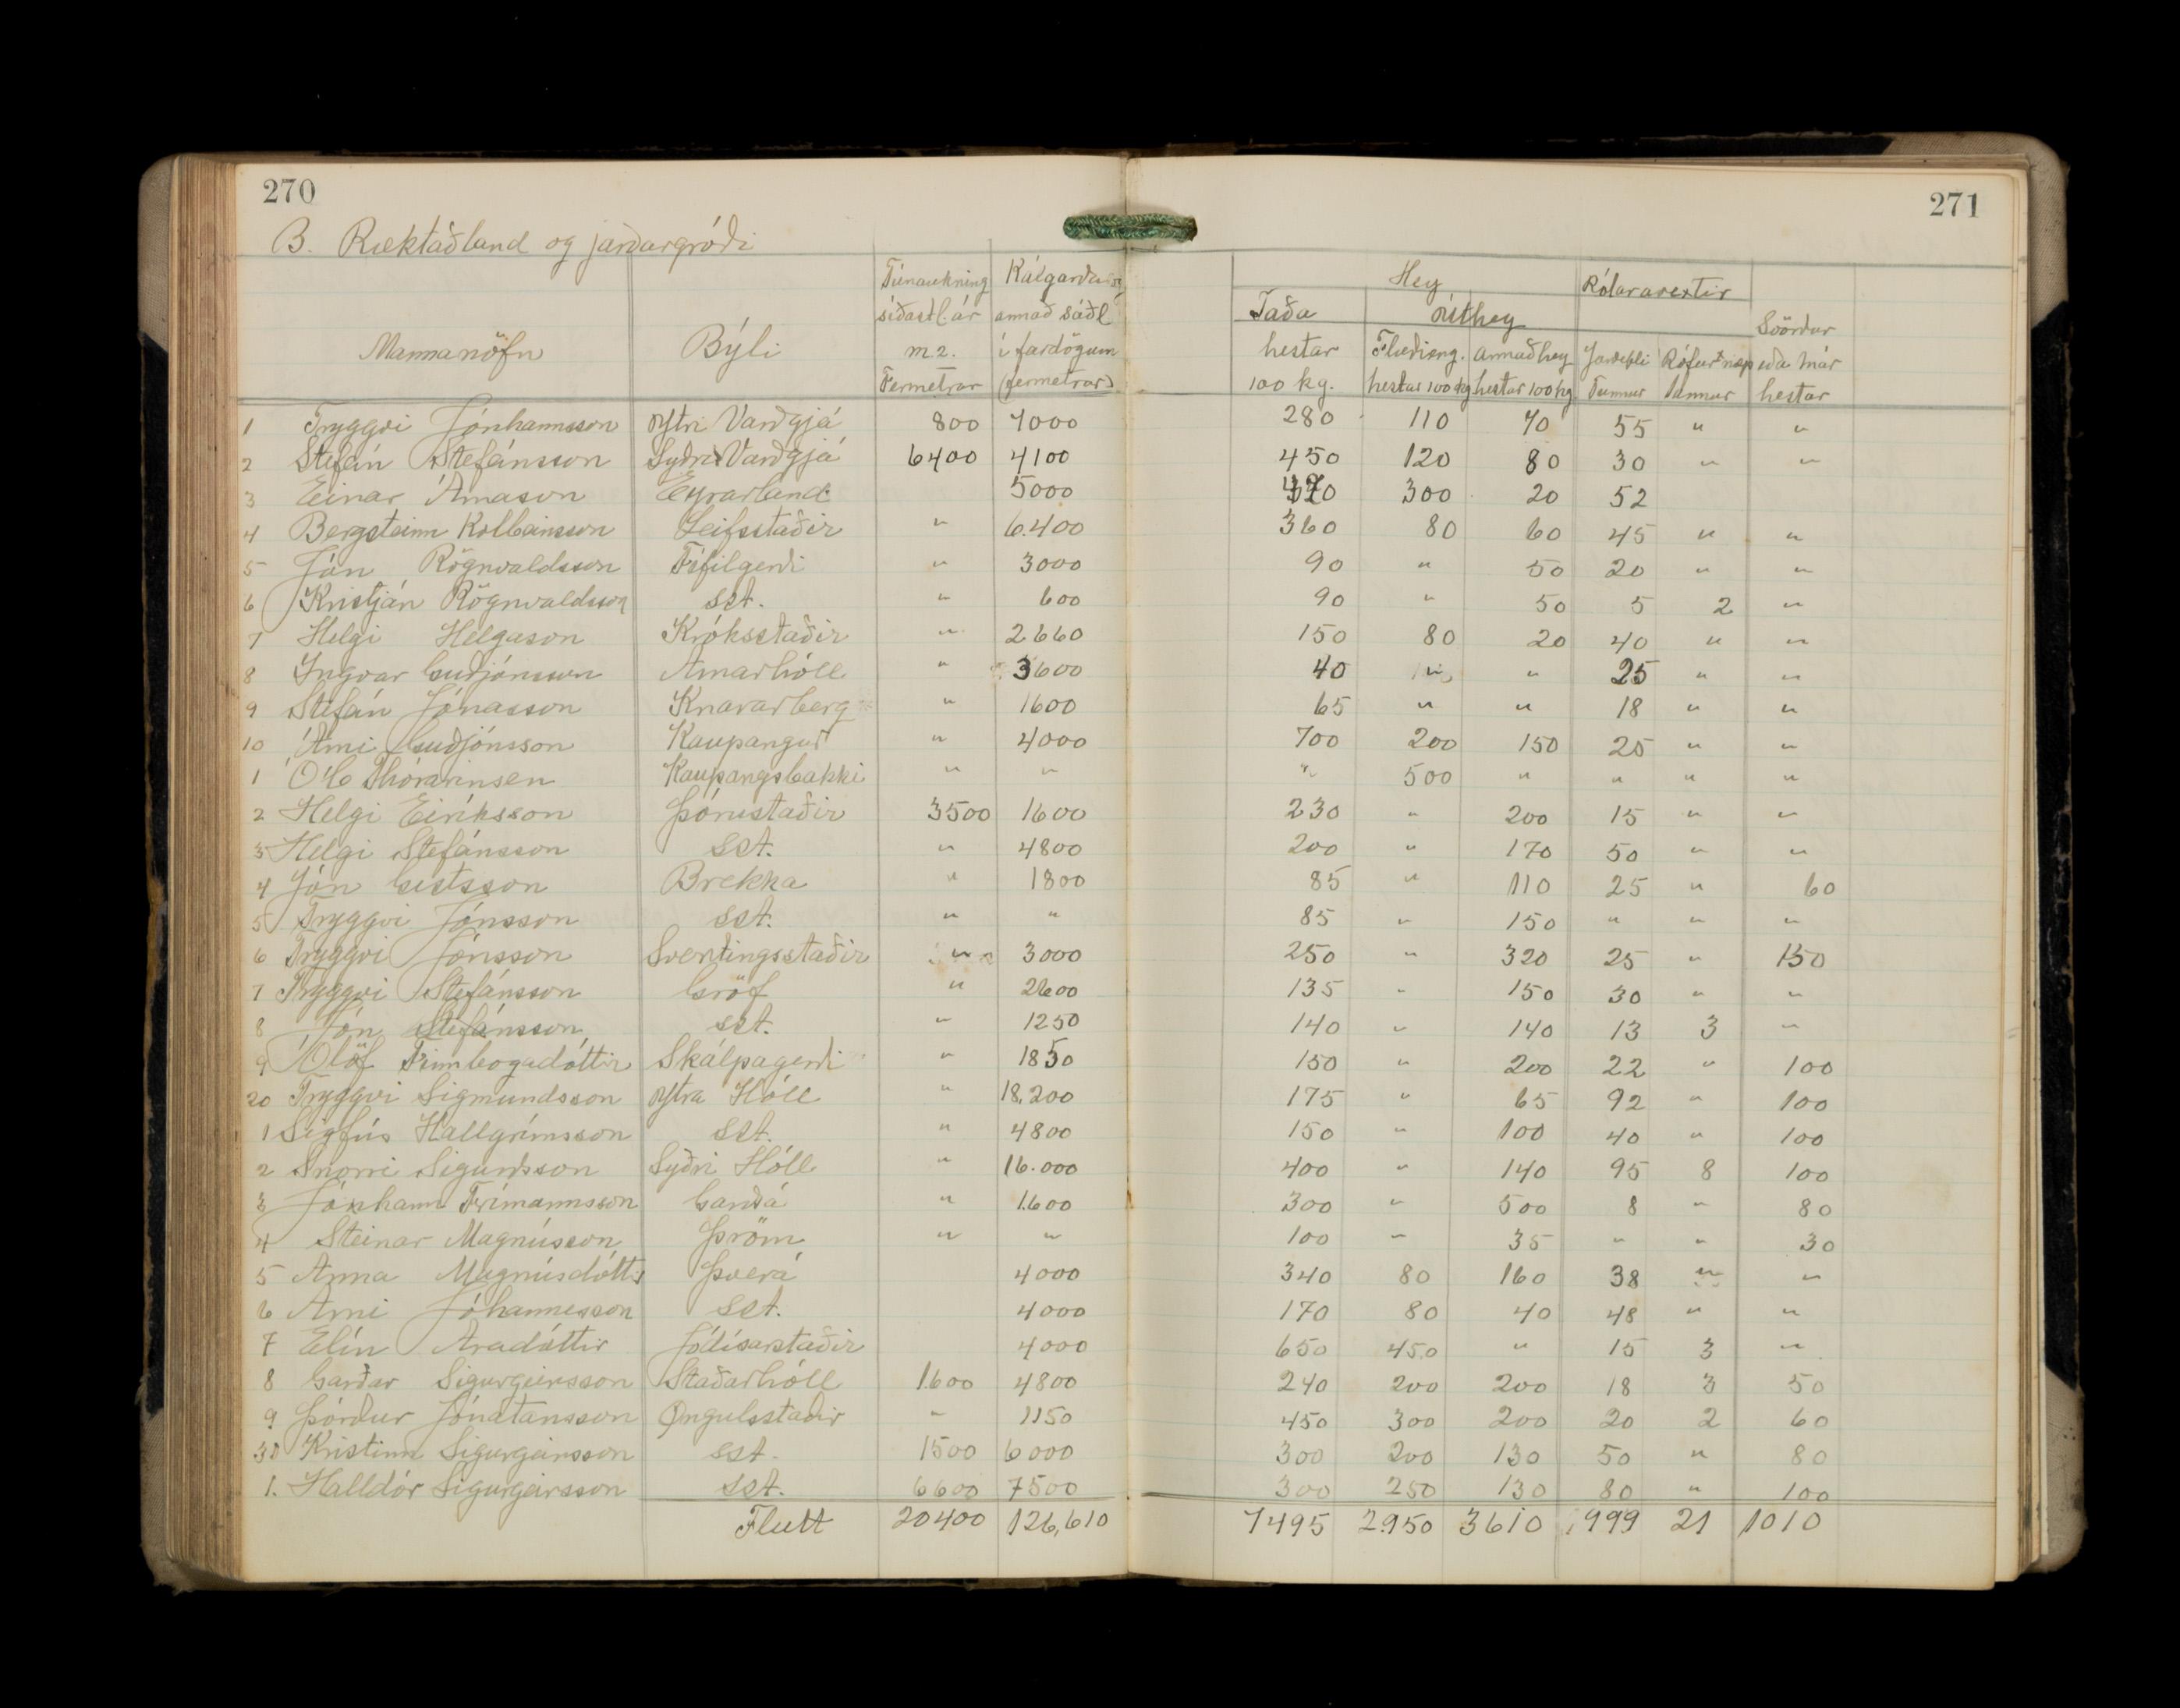 270
271
B. Ræktað land og jarðargróði
Mannanöfn Býli Túnaukning síðastl. ár m2. Fermetrar Kálgarðar annað sáðl í fardögum (fermetrar) Hey Taða hestar 100 kg. Úthey Flæðieng. hestar 100 kg Annað hey hestar 100 kg. Jarðepli Tunnur Rófur næp tunnur Svörður eða mór hestar
1 Tryggvi Jónhannsson Ytri Varðgjá 800 7000 280 110 70 55 " "
2 Stefán Stefánsson Syðri Varðgjá 6400 4100 450 120 80 30 " "
3 Einar Árnason Eyrarland 5000 300 20 52
4 Bergsteinn Kolbeinsson Leifsstaðir " 6.400 360 80 60 45 " "
5 Jón Rögnvaldsson Fífilgerði " 3000 90 " 50 20 " "
6 Kristján Rögnvaldsson sst. " 600 90 " 50 5 2 "
7 Helgi Helgason Króksstaðir " 2660 150 80 20 40 " "
8 Yngvar Guðjónsson Arnarhóll " 3600 40 " " 25 " "
9 Stefán Jónasson Knararberg " 1600 65 " " 18 " "
10 Árni Guðjónsson Kaupangur " 4000 700 200 150 25 " "
1 Ó.C Thórarinsen Kaupangsbakki " " " 500 " " " "
2 Helgi Eiríksson Þórustaðir 3500 1600 230 " 200 15 " "
3 Helgi Stefánsson sst. " 4800 200 " 170 50 " "
4 Jón Gestsson Brekka " 1800 85 " 110 25 " 60
5 Tryggvi Jónsson sst. " " 85 " 150 " " "
6 Tryggvi Jónsson Svertingsstaðir " 3000 250 " 320 25 " 150
7 Tryggvi Stefánsson Gröf " 2600 135 " 150 30 " "
8 Jón Stefánsson sst. " 1250 140 " 140 13 3 "
9 Ólöf Finnbogadóttir Skálpagerði " 1850 150 " 200 22 " 100
20 Tryggvi Sigmundsson Ytra Hóll " 18.200 175 " 65 92 " 100
1 Sigfús Hallgrímsson sst. " 4800 150 " 100 40 " 100
2 Snorri Sigurðsson Syðri Hóll " 16.000 400 " 140 95 8 100
3 Jónhann Frímannsson Garðá " 1.600 300 " 500 8 " 80
4 Steinar Magnússon Þröm " " 100 " 35 " " 30
5 Anna Magnúsdóttir Þverá 4000 340 80 160 38 " "
6 Árni Jóhannesson sst. 4000 170 80 40 48 " "
7 Elín Aradóttir Jódísarstaðir 4000 650 450 " 15 3 "
8 Garðar Sigurgeirsson Staðarhóll 1.600 4800 240 200 200 18 3 50
9 Þórður Jónatansson Öngulsstaðir " 1150 450 300 200 20 2 60
30 Kristinn Sigurgeirsson sst. 1500 6000 300 200 130 50 " 80
1. Halldór Sigurgeirsson sst. 6600 7500 300 250 130 80 " 100
Flutt 20400 126,610 7495 2950 3610 999 21 1010